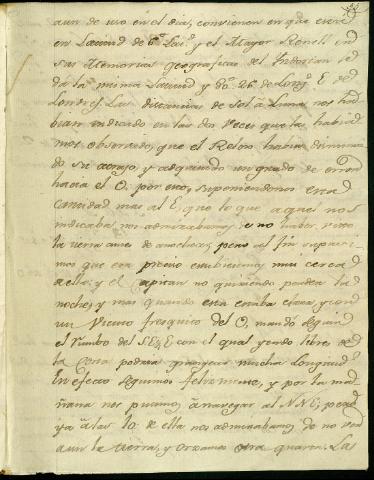 aun de uso en el dia, convienen en que esta
en Latitud de 6º Lat. y el Mayor Renell en
sus Memorias geograficas del Indostan le
da la misma Latitud y 80º 26' de Long. E. de
Londres. Las distancias de Sol a Luna nos ha
bian indicado en las dos veces que las habia
mos observado, que el Relox habia disminui
do su atraso, y adquirido un grado de error
hacia el O. por eso, suponiendonos esta
cantidad mas al E, que lo que aquel nos
indicaba, nos admirabamos, de no haber visto
la tierra antes de anochecer; pero al fin supusi
mos que era preciso estubiesemos mui cerca
de ella; y el Capitan no quiriendo perder la
noche, y mas quando esta estaba clara, y con
un viento fresquito del O, mandó seguir
el rumbo del SE¼E con el qual yendo libres de
la costa podria granjear mucha Longitud
En efecto seguimos felizmente, y por la ma
ñana nos pusimos á navegar al NNE; pero
ya á las 10 de ella nos admirabamos de no ver
aun la tierra, y orzamos otra quarta. Las